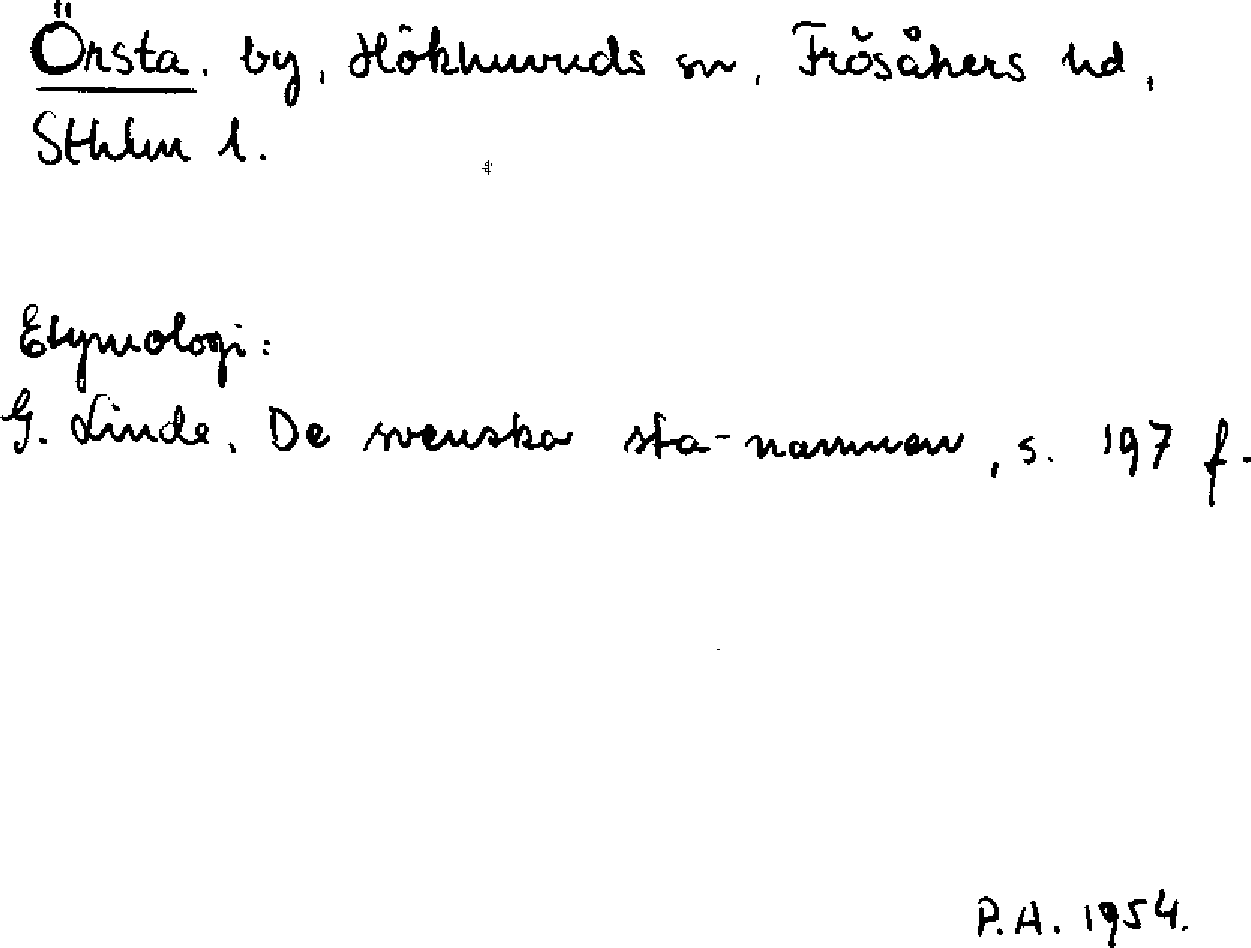 Örsta, by, Hökhuvuds sn, Frösåkers hd,
Sthlm l.
Etymologi:
G. Linde, De svenska sta-namnen, s. 197 f.
P.A. 1954.